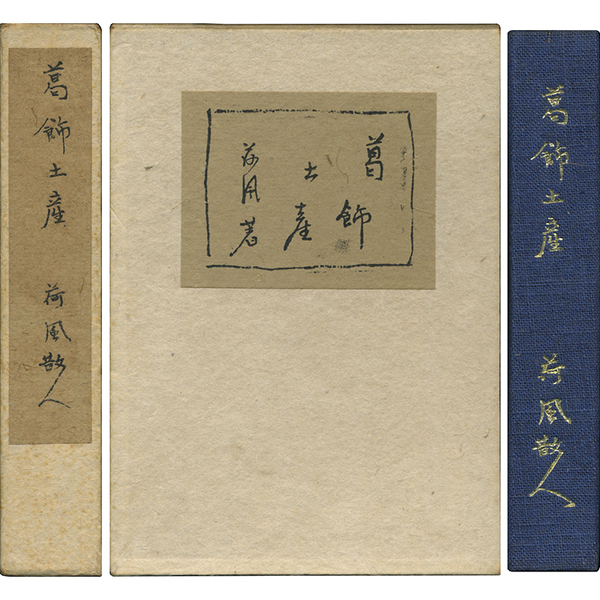 葛飾土産 荷風散人
葛飾
土産
荷風著
葛飾土産 荷風散人